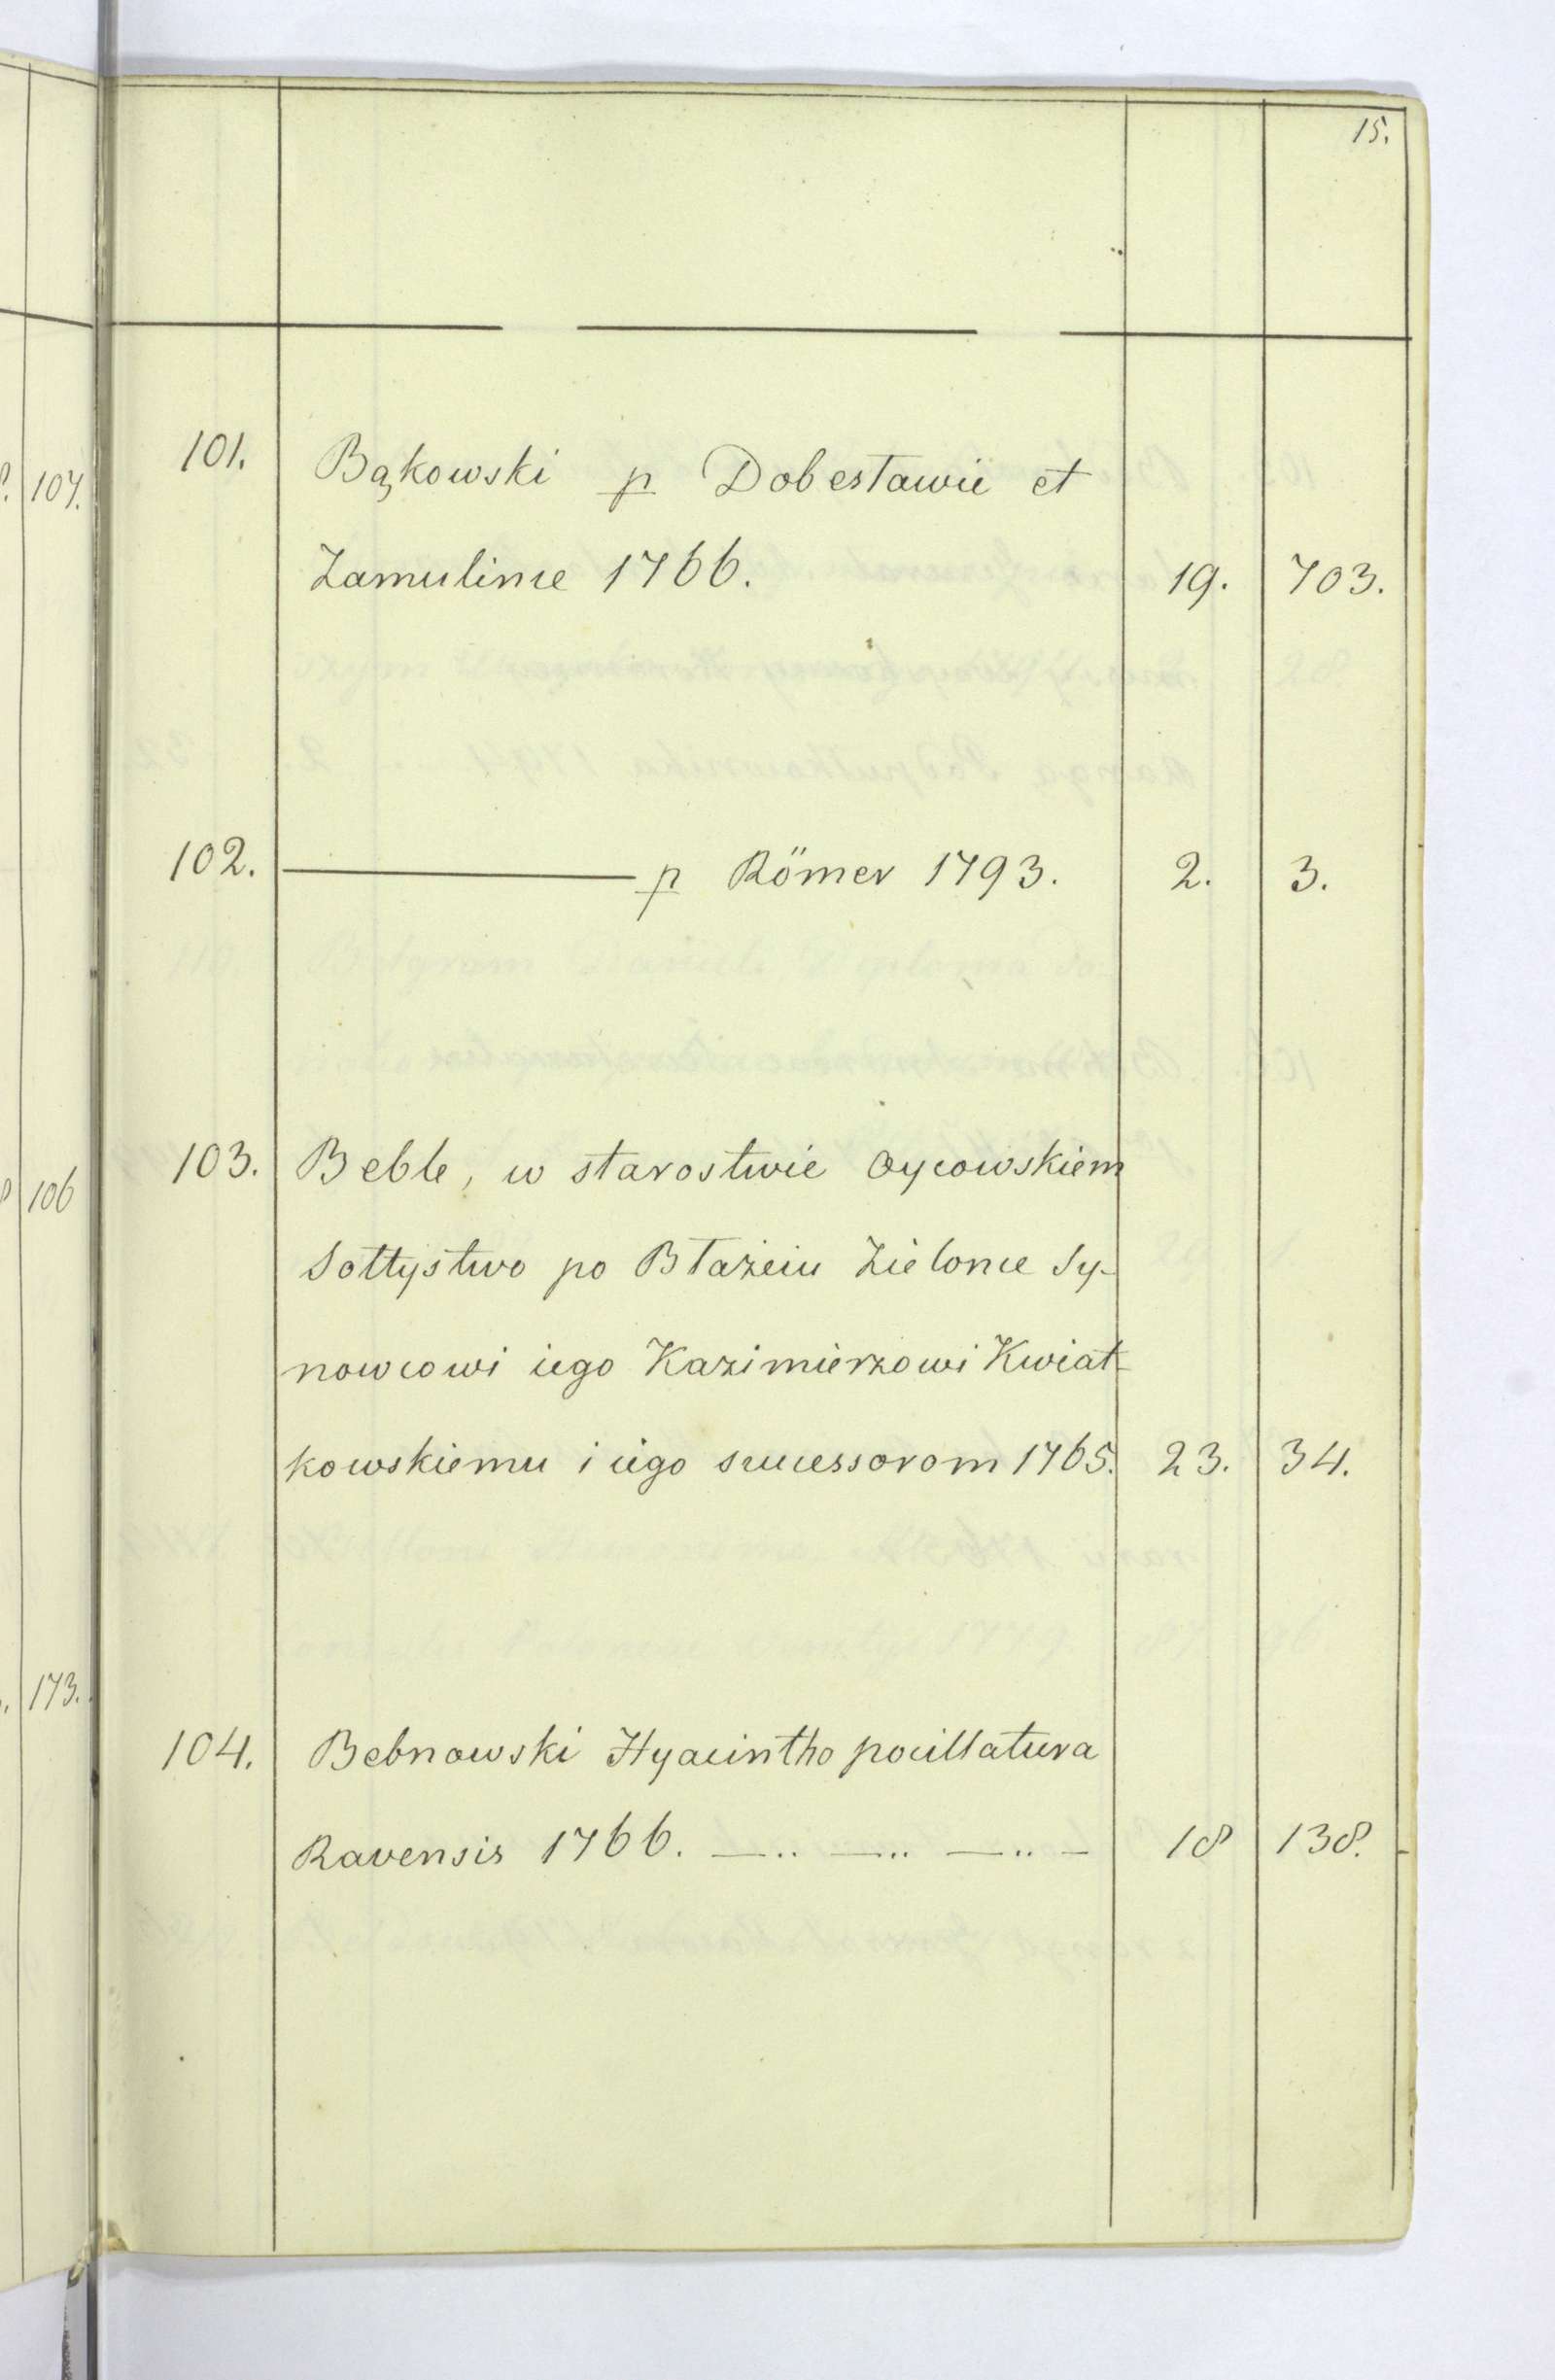 15.
101. Bąkowski p Dobesławie et
Zamulinie 1766. 19. 703.
102. ——— p Römer 1793. 2. 3.
103. Beble, w starostwie Oycowskiem
Sołtystwo po Błażeiu Zielonce Sy-
nowcowi iego Kazimierzowi Kwiat-
kowskiemu i iego successorom 1765. 23. 34.
104. Bebnowski Hyacintho pocillatura
Ravensis 1766. —.. —.. —.. — 18 138.
107.
106
173.